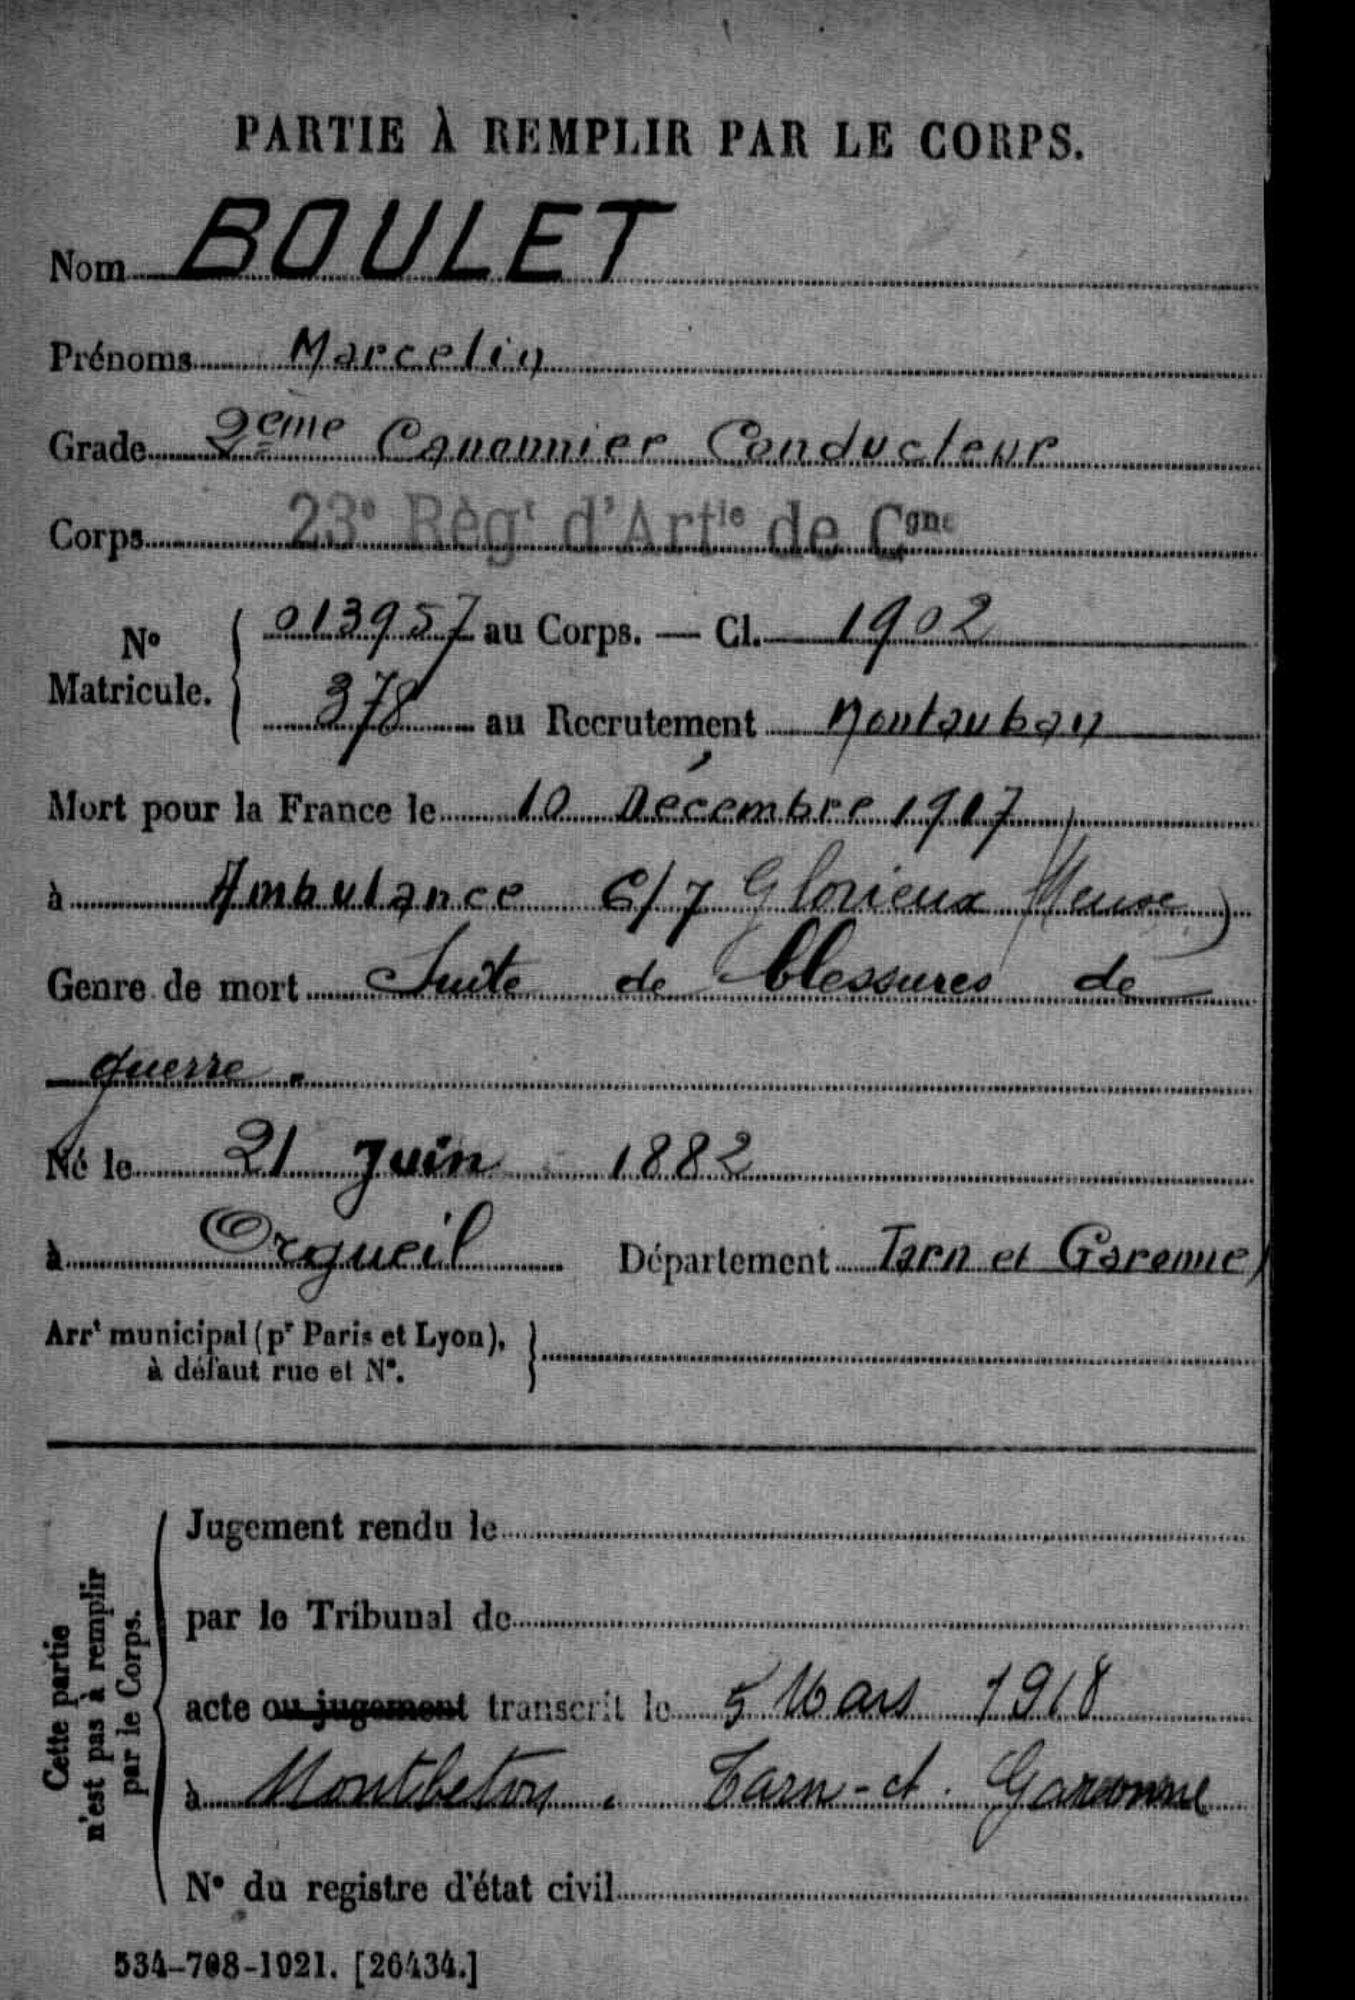 PARTIE À REMPLIR PAR LE CORPS.
Nom BOULET
Prénoms Marcelin
Grade 2ème Canonnier Conducteur
Corps 23e Règt d'Artie de Cgne
No Matricule. 013957 au Corps. — Cl. 1902
378 au Recrutement Montauban
Mort pour la France le 10 Décembre 1917
à Ambulance 6/7 Glorieux (Meuse)
Genre de mort Suite de blessures de
guerre.
Né le 21 Juin 1882
à Orgueil Département Tarn et Garonne
Arrt municipal (pr Paris et Lyon),
à défaut rue et No.
Cette partie
n'est pas à remplir
par le Corps.
Jugement rendu le
par le Tribunal de
acte ou jugement transcrit le 5 Mars 1918
à Montbeton. Tarn-et-Garonne
No du registre d'état civil
534-708-1921. [26434.]